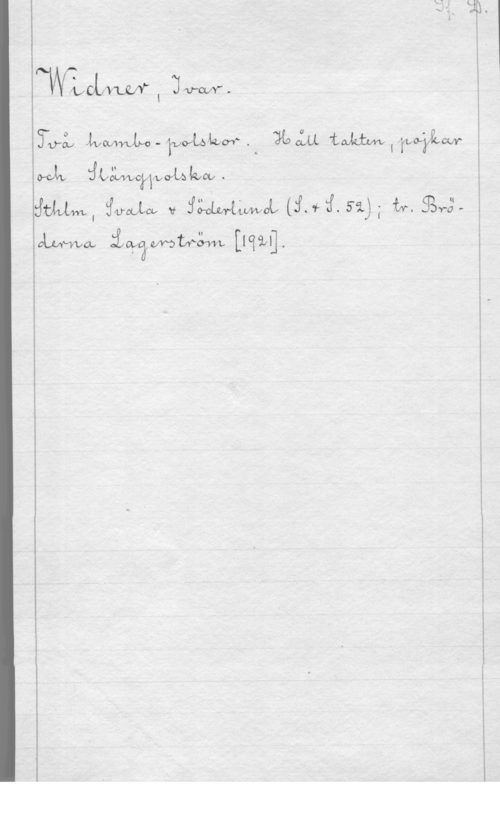 Widner, Ivar.
Två hambo-polskor. Håll takten, pojkar
och Slängpolska.
Sthlm, Svala & Söderlund (S. & S. 52); tr. Brö-
derna Lagerström [1921].